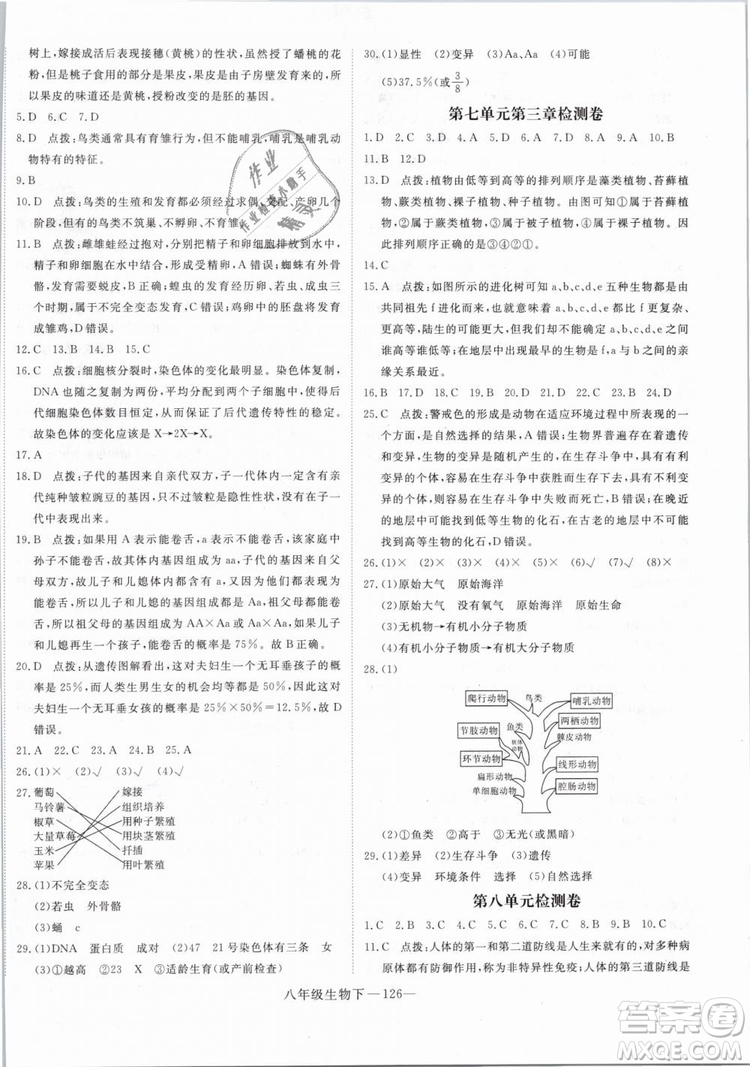 树上,嫁接成活后表现接穗(黄桃)的性状,虽然接受了蟠桃的花
粉,但桃子食用的部分是果皮,果皮是由子房壁发育来的,
所以果皮的味道还是黄桃,授粉改变的是胚的基因。
5.D 6.D 7.D
8.D 点拨:鸟类通常具有育雏行为,但不能哺乳,哺乳是哺乳动
物特有的特征。
9.B
10.D 点拨:鸟类的生殖和发育都必须经过求偶、交配、产卵几个
阶段,但有的鸟类不筑巢、不孵卵、不育雏。
11.B 点拨:雌雄蛙经过抱对,分别将精子和卵细胞排放到水中,
精子和卵细胞在水中完成受精,A错误;蜘蛛等有外骨
骼,发育过程中有蜕皮,B正确;蝗虫的发育经过卵、若虫、成虫三
个时期,属于不完全变态发育,C错误;鸡卵中的胚盘将来发育
成雏鸡,D错误。
12.C 13.B 14.B 15.C
16.C 点拨:细胞分裂时,染色体的变化最明显。染色体先复制,
DNA也随着复制为两份,平均分到两个子细胞中,这样亲子
代细胞染色体数目恒定,从而保证了前后代遗传特性的稳定。
故染色体的变化应该是X→2X→X。
17.A
18.D 点拨:子代的基因来自亲本双方,子代的一个基因来自母
代纯种皱粒豌豆的基因,只不过皱粒是隐性性状未得到表现。
19.B 点拨:如果用A表示能卷舌,a表示不能卷舌,该家庭中
孙子不能卷舌,故其体内基因组成是aa,子代的基因来自父
母双方,故儿子和儿媳的基因组成都是Aa,祖父母都能卷舌,
所以祖父和祖母的基因组成是AA×Aa或Aa×Aa。儿子和
儿媳如果再生一个孩子,能卷舌的可能性是75%。故B正确。
20.D 点拨:从遗传图解可以看出,这对夫妇生一个无耳垂孩子的概
率是25%,而人类生男生女的可能性各是50%,因此这对夫
妇生一个无耳垂女孩的可能性是25%×50%=12.5%,故D
错误。
21.A 22.C 23.A 24.B 25.A
26.(1)× (2)√ (3)√ (4)×
27.葡萄 嫁接
马铃薯 组织培养
椒草 用种子繁殖
大量草莓 用块茎繁殖
玉米 扦插
苹果 用叶繁殖
28.(1)不完全变态
(2)若虫 外骨骼
(3)蛹 c
29.(1)DNA 蛋白质 成对 (2)47 21号染色体有三条 女
(3)①越高 ②23 X ③适龄生育(或产前检查)
30.(1)显性 (2)变异 (3)Aa、Aa (4)可能
(5)37.5%(或3/8)
第七单元第三章检测卷
1.D 2.C 3.C 4.D 5.B 6.C 7.D 8.D 9.D 10.D
11.B 12.D
13.D 点拨:植物由低等到高等的排列顺序是藻类植物、苔藓植
物、蕨类植物、裸子植物、种子植物。由图可知,①为苔藓植
物,②属于蕨类植物,③属于被子植物,④属于裸子植物。
因此排列顺序正确的是③④②①。
14.C
15.A 点拨:如图所示的进化树可知a、b、c、d、e五种生物都是由
共同祖先f进化而来,也就意味着a、b、c、d、e都比f更复杂、
更高等,陆生的可能性更大;在地层中越晚出现的生物
越高等;在地层中出现最早的生物是f,a与b之间的亲
缘关系最近。
16.B 17.D 18.D 19.C 20.B 21.D 22.D 23.B 24.C
25.C 点拨:警戒色的形成是动物在适应环境过程中所表现的一
个方面,是自然选择的结果,A错误;生物界普遍存在着遗传
和变异,生物的变异是随机产生的,在生存斗争中,具有有利
变异的个体容易在生存斗争中获胜而生存下去,具有不利
变异的个体,容易在生存斗争中失败而被淘汰,B错误;在越晚近
的地层中可能找到低等生物的化石,在古老的地层中不可能
找到高等生物的化石,D错误。
26.(1)× (2)√ (3)× (4)× (5)√ (6)√ (7)√ (8)×
27.(1)原始大气 原始海洋
(2)原始大气 没有氧气 原始海洋
(3)无机物→有机小分子物质
(4)有机小分子物质→有机大分子物质
28.(1)
爬行动物 鸟类 哺乳动物
节肢动物 鱼类 两栖动物
软体动物 棘皮动物
环节动物 线形动物
扁形动物
单细胞动物 腔肠动物
(2)①鱼类 ②高于 ③无光(或黑暗)
29.(1)差异 (2)生存斗争 (3)遗传
(4)变异 环境条件 选择
第八单元检测卷
1.C 2.A 3.C 4.A 5.B 6.C 7.A 8.C 9.B 10.B
11.C 点拨:人体的第一和第二道防线是人生来就有的,对多种病
原体都有防御作用,属于非特异性免疫;人体的第三道防线是
八年级生物下—126—
作业
作业检查小助手
精灵
答案圈
MXQE.COM